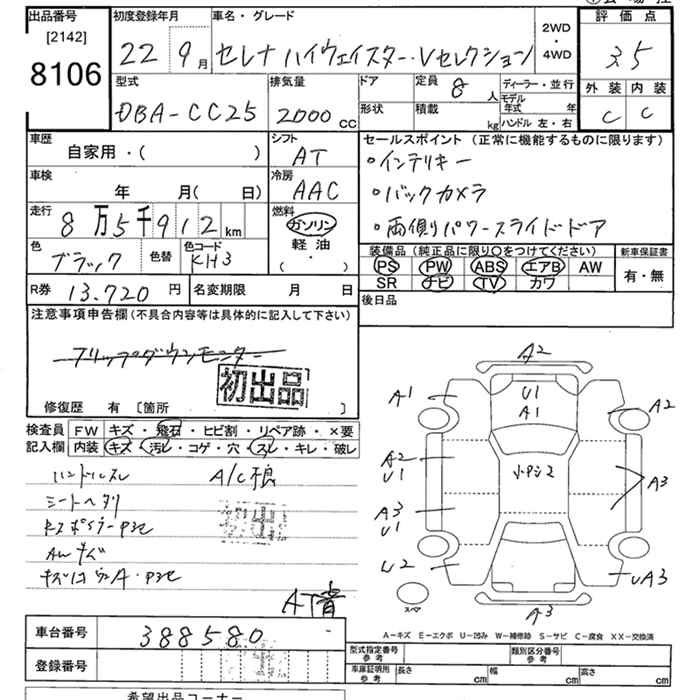 出品番号
[2142]
8106
初度登録年月
22 9月
車名・グレード
セレナ ハイウェイスター・Vセレクション
2WD
・
4WD
評価点
3.5
外装 内装
C C
型式
DBA-CC25
排気量
2000 CC
ドア
形状
定員 8 人
積載 kg
ディーラー・並行
モデル年式 年
ハンドル 左・右
車歴
自家用・( )
シフト
AT
車検
年 月( 日)
冷房
AAC
走行
8万5千912 km
燃料
ガソリン
軽油
( ・ )
色
ブラック
色替
色コード
KH3
セールスポイント (正常に機能するものに限ります)
・インテリキー
・バックカメラ
・両側パワースライドドア
装備品 (純正品に限り○をつけてください)
PS PW ABS エアB AW
SR ナビ TV カワ
新車保証書
有・無
R券 13.720 円
名変期限 月 日
後日品
注意事項申告欄(不具合内容等は具体的に記入して下さい)
フリップダウンモニター
初出品
修復歴 有 [箇所 ]
検査員記入欄
FW キズ・飛石・ヒビ割・リペア跡・×要
内装 キズ・汚レ・コゲ・穴・スレ・キレ・破レ
ハンドルスレ A/C不良
シートヘタリ
AWキズ
A2
A1
U1
A1
A2
A2
U1
小P父2
A3
U1
A3
U2
UA3
A3
スペア
A-キズ E-エクボ U-凹み W-補修跡 S-サビ C-腐食 XX-交換済
車台番号 388580
登録番号
型式指定番号
参考
類別区分番号
参考
車庫証明用
参考
長さ cm 幅 cm 高さ cm
希望出品コーナー